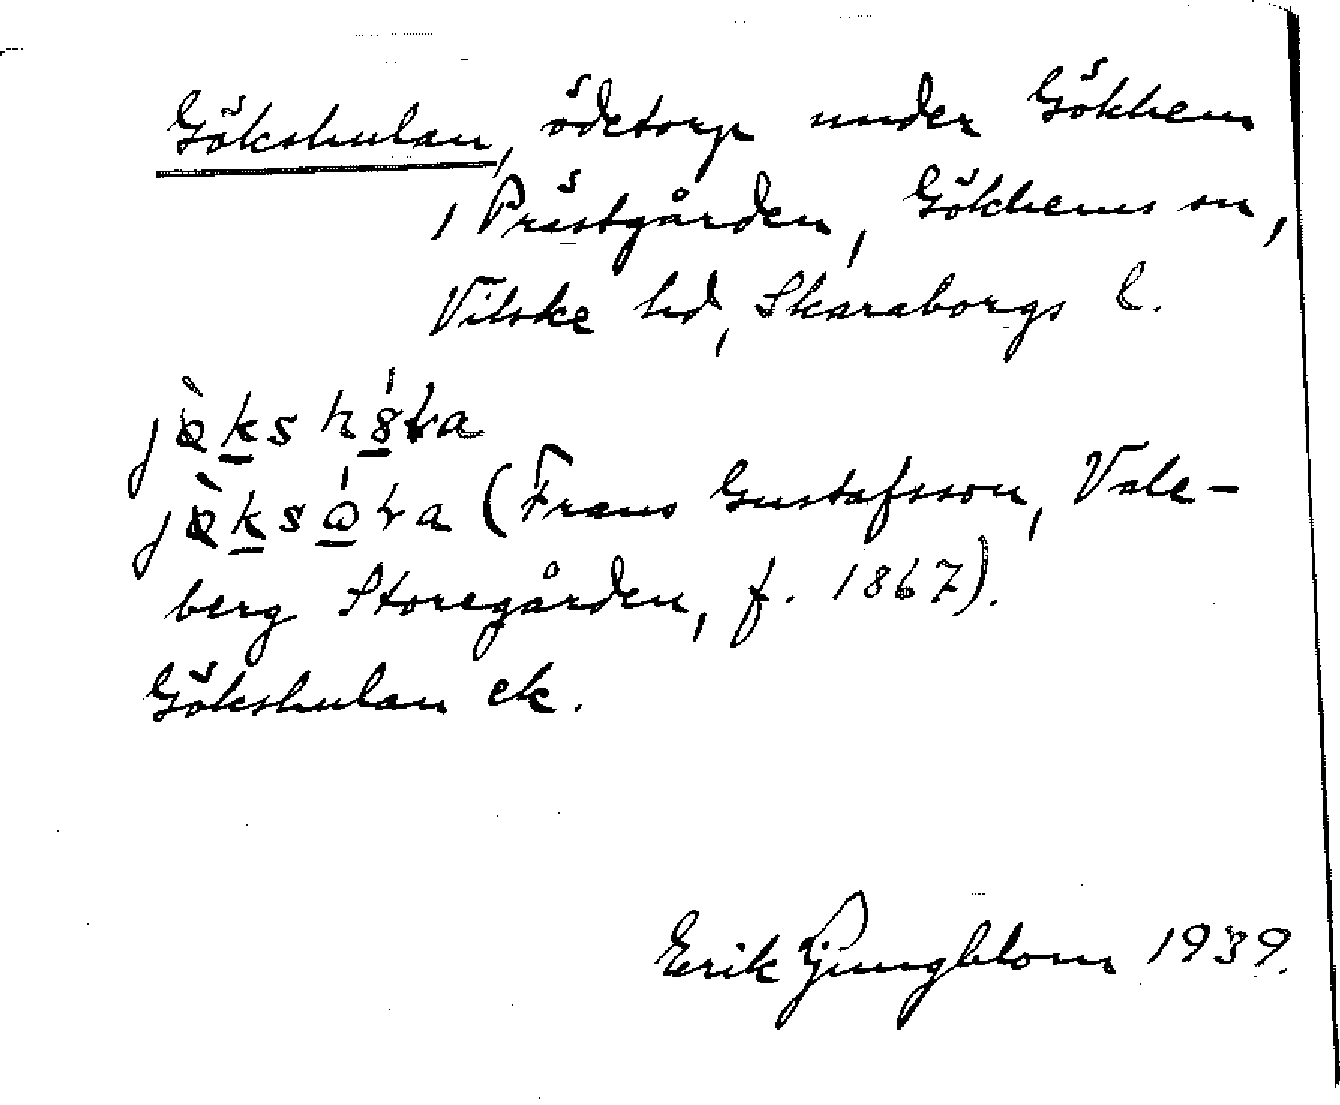 Gökshulan, ödetorp under Gökhem
Prästgården, Gökhems sn,
Vilske hd, Skaraborgs l.
(Frans Gustafsson, Vale-
berg Storegården, f. 1867).
Gökshulan ek.
Erik Ljungblom 1939.